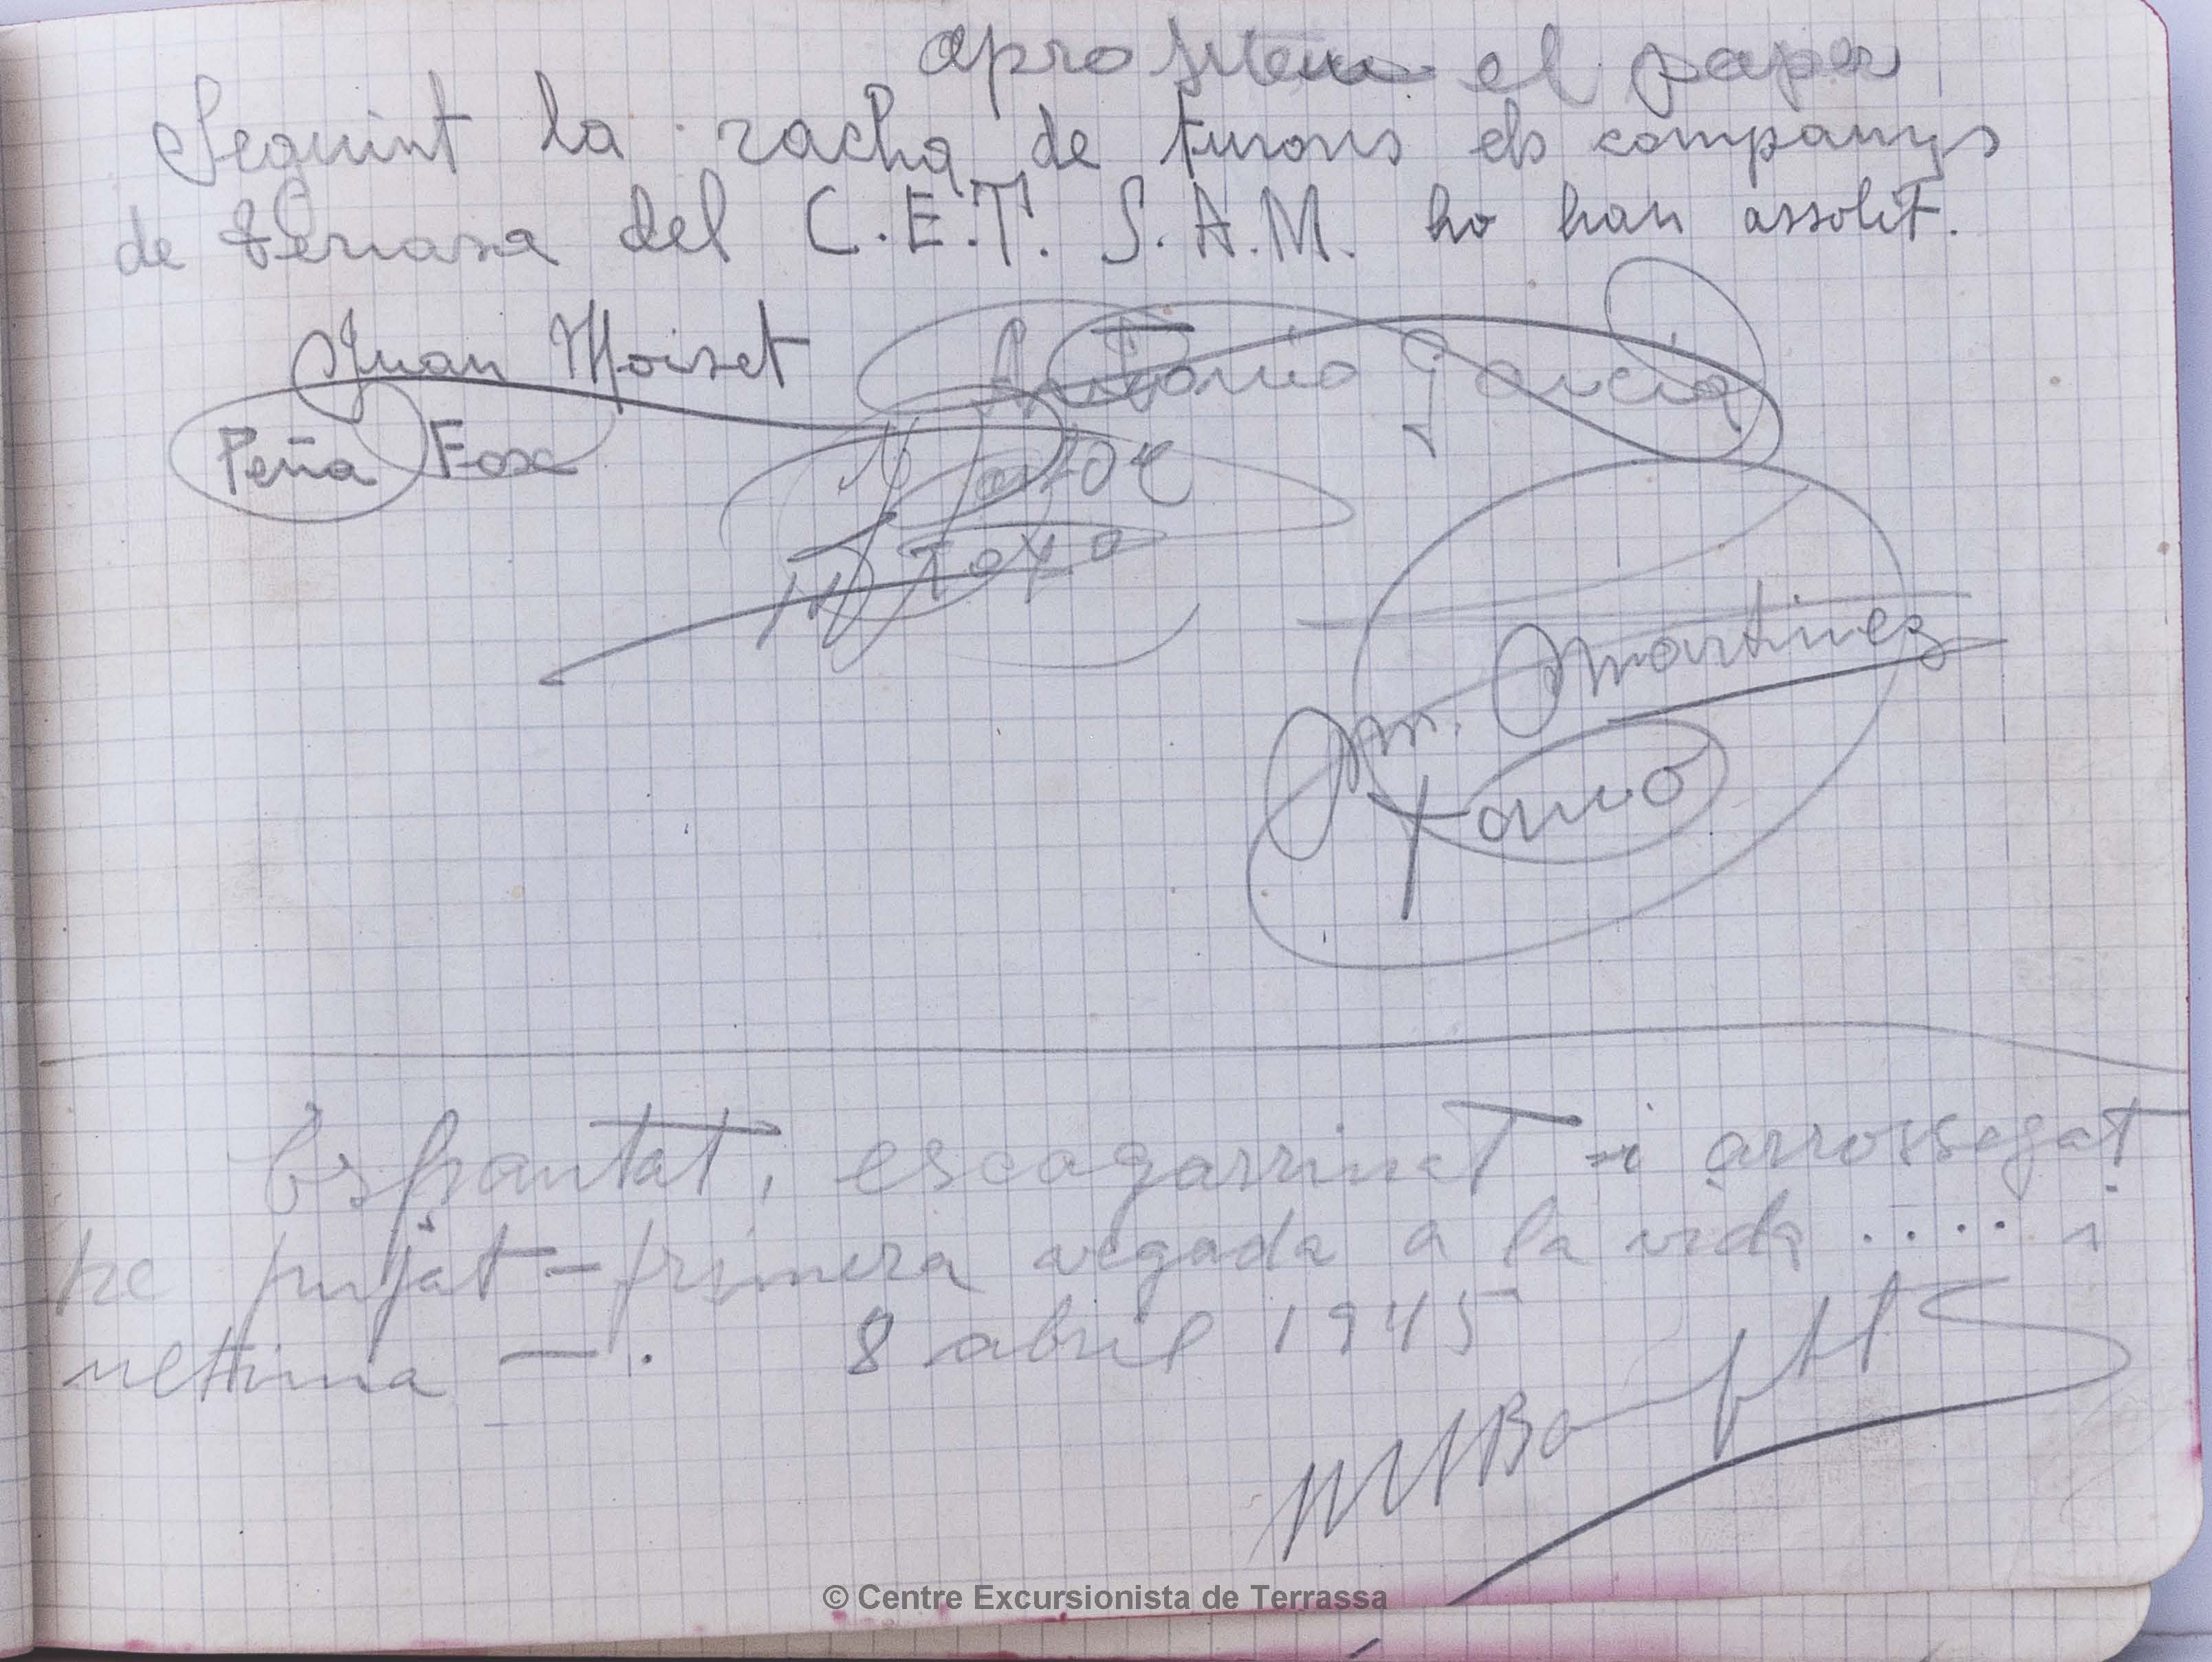 aprofitem el paper
Seguint la racha de turons els companys
de Terrasa del C.E.T. S.A.M. ho han assolit.
Juan Moiset
Antonio Garcia
Peña Fosa
Martinez
Espantat, escagarrinat i arrossegat
he pujat - primera vegada a la vida ..... i
ultima - . 8 abril 1945
© Centre Excursionista de Terrassa